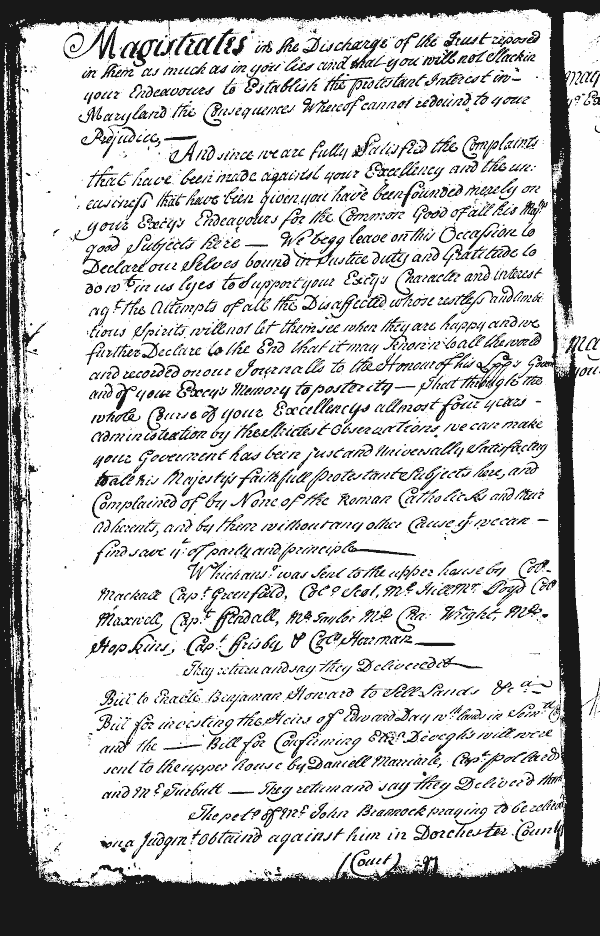 Magistrates in the Discharge of the Trust reposed
in them as much as in you lies and that you will not Slacken
your Endeavours to Establish the protestant Interest in
Maryland the Consequences Whereof cannot redound to your
Prejudice, —
And since we are fully Satisfied the Complaints
that have been made against your Excellency and the un:
easiness that have been given you have been founded merely on
your Excys Endeavours for the Common Good of all his Majtys
good Subjects here — We begg leave on this Occassion to
Declare our Selves bound in Justice duty and Gratitude to
do wt in us lyes to Support your Excys Character and interest
agt the Attempts of all the Disaffected whose restless and ambi
tious Spirits will not let them see when they are happy and we
further Declare to the End that it may Known to all the world
and recorded on our Journalls to the Honour of his Lpps
and of your Excys Memory to posterity — That through the
whole Course of your Excellencys allmost four years -
administration by the Strictest Observations we can make
your Goverment has been just and universally Satisfactory
to all his Majestys faithfull protestant Subjects here, and
Complained of by None of the Roman Catholicks and their
adherents, and by them without any other Cause yt we can —
find save yt of party and principle —
Which anst was sent to the upper house by Coll
Mackall Capt Greenfield, Colo Mr Mr Loyd Coll
Maxwell, Capt ffendall, Mr Taylor Mr Cha: Wright, Mr
Hopkins, Capt ffrisby & Colo Herman —
They return and say they Delivered it —
Bill to Enable Benjaman Howard to Sell Lands &c a
Bill for investing the Heirs of Edward Day wth lands in
and the — Bill for Confirming will were
sent to the upper house by Daniell Mariarte, Capt
and Mr Turbutt — They return and say they Deliverd them
The peto of Mr John Brannock praying to be relievd
on a Judgmt obtaind against him in Dorchester County
(Court)